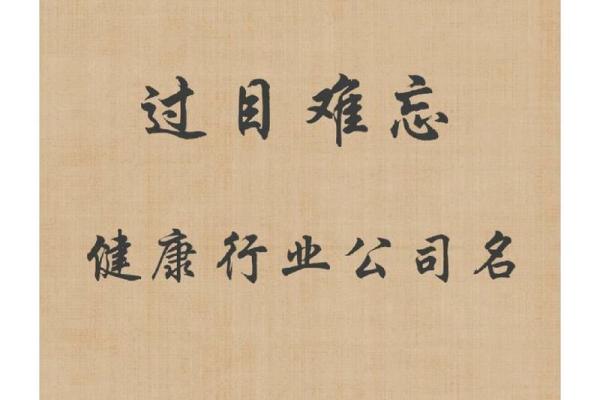 过目难忘
健康行业公司名